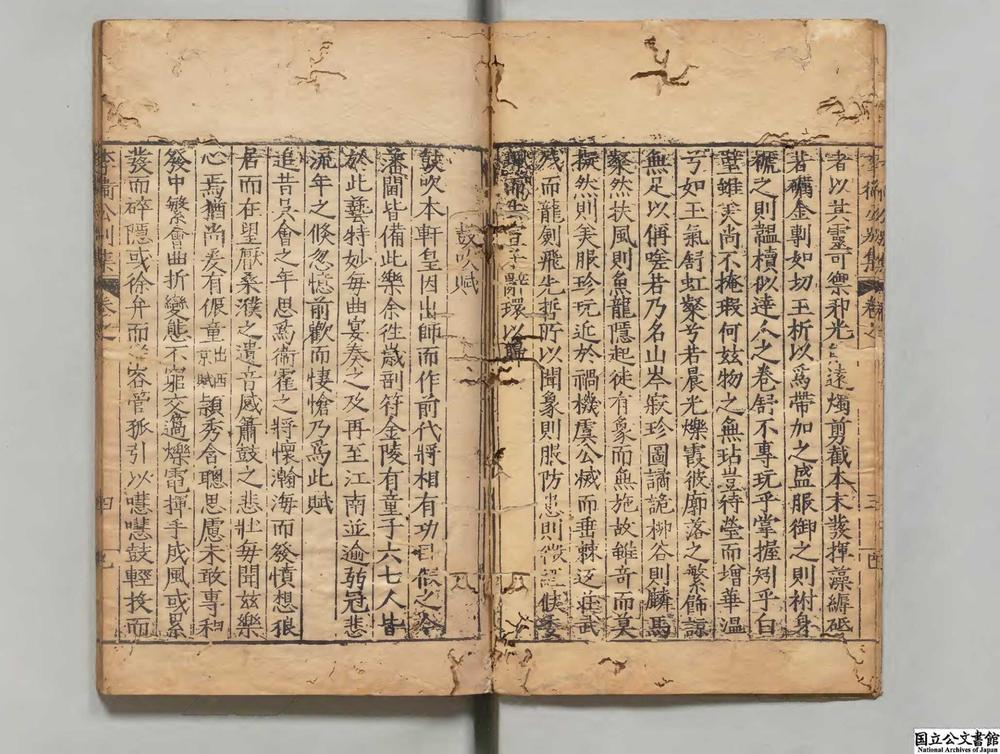 者以其靈可禦邪光 遠燭剪截本末發揮藻縟砥
若礪金剸如切玉析以為帶加之盛服御之則袝身
褫之則韞櫝似達人之卷舒不專玩乎掌握矧乎白
華雖美尚不掩瑕何玆物之無玷豈待瑩而增華溫
兮如玉氣舒虹粲兮若晨光爍霞彼廓落之繁飾諒
無足以偁嗟若乃名山岑寂珍圖譎詭柳谷則麟馬
粲然扶風則魚龍隱起徒有象而無施故雖奇而莫
擬然則美服珍玩近於禍機虞公滅而垂棘返莊武
殘而龍劍飛先哲所以聞象則服防患則微
環以歸
鼓吹賦
鼓吹本軒皇因出師而作前代將相有功 假之今
藩閫皆備此樂余往歲副符金陵有童子六七人皆
於此藝特妙每曲宴奏之及再至江南並逾弱冠悲
流年之倏忽憶前歡而悽愴乃為此賦
追昔吳會之年思為衛霍之將懷瀚海而發憤想狼
居而在望厭桑濮之遺音感簫鼓之悲壯每聞玆樂
心焉猶尚爰有侲童出西京賦頴秀含聰思慮未敢專和
發中繁會曲折變態不窮交過爍電揮手成風或累
發而碎隱或徐弁而 容管孤引以嘒嘒鼓輕投而
李衛公別集 卷之 四